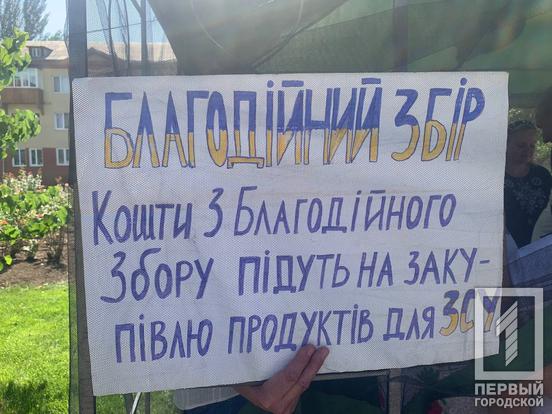 БЛАГОДІЙНИЙ ЗБІР
КОШТИ З БЛАГОДІЙНОГО
ЗБОРУ ПІДУТЬ НА ЗАКУ-
ПІВЛЮ ПРОДУКТІВ ДЛЯ ЗСУ
1
ПЕРВЫЙ
ГОРОДСКОЙ